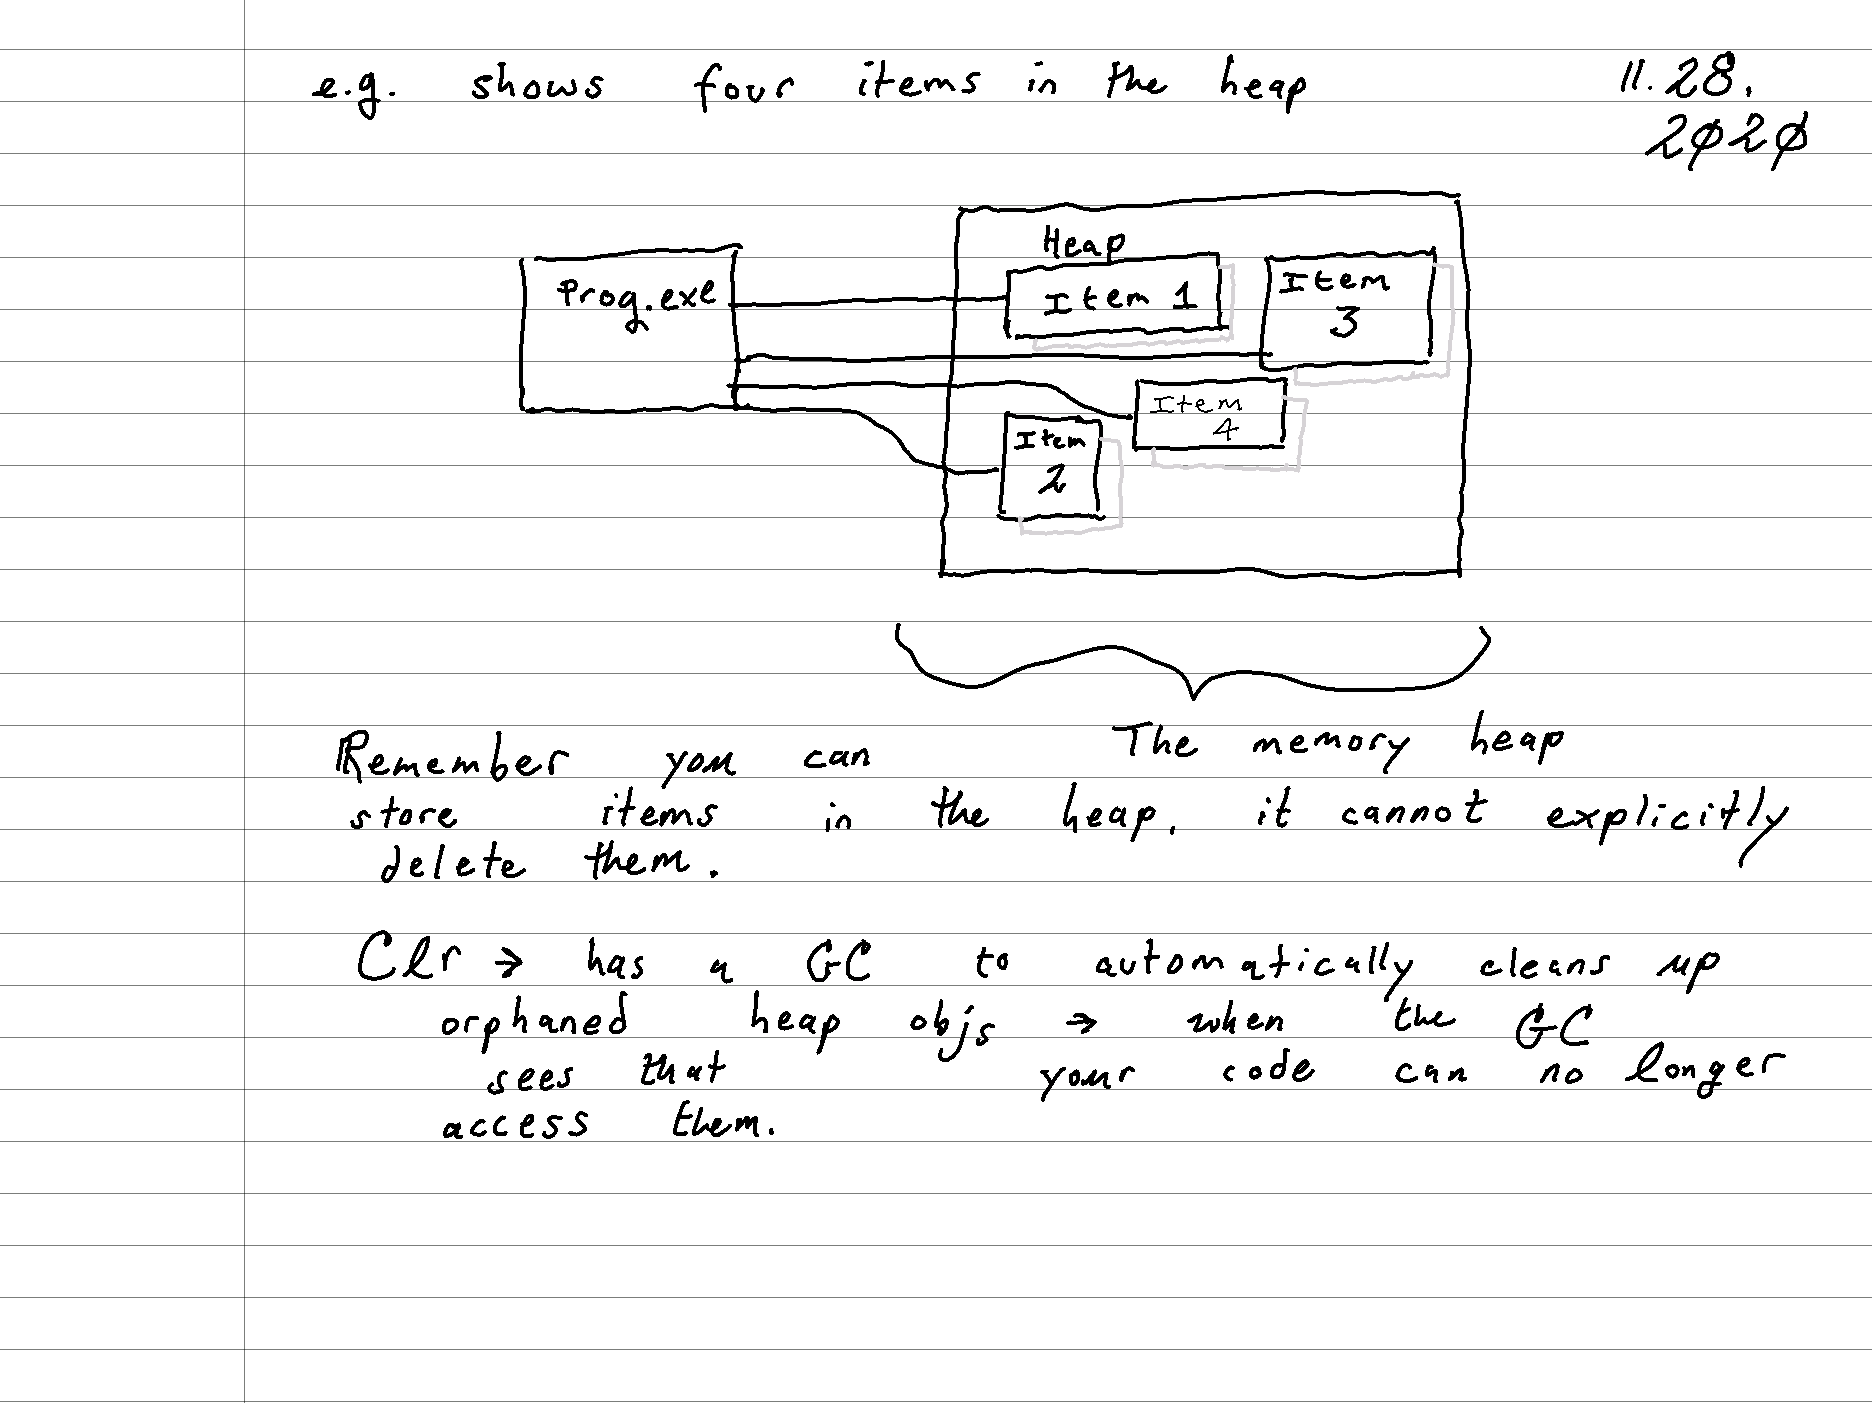 e.g. shows four items in the heap 11.28.
2020
Heap
Prog.exe Item 1 Item
3
Item
4
Item
2
The memory heap
Remember you can
store items in the heap, it cannot explicitly
delete them.
Clr → has a GC to automatically cleans up
orphaned heap objs → when the GC
sees that your code can no longer
access them.